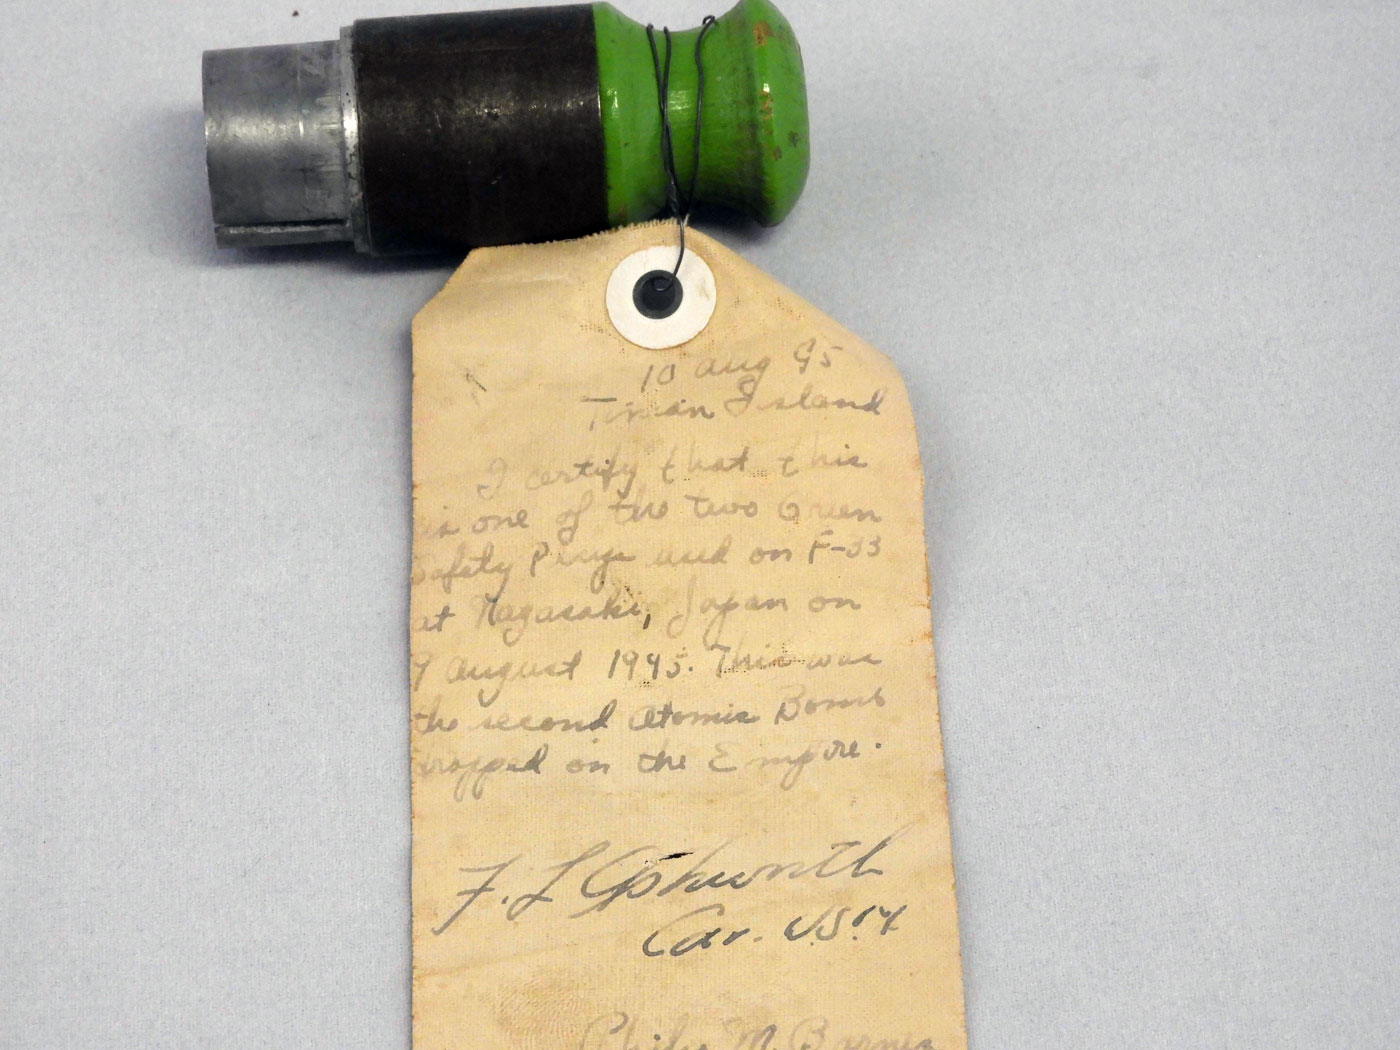 10 Aug 45
Tinian Island
I certify that this
is one of the two Green
Safety Plugs used on F-33
at Nagasaki, Japan on
9 August 1945. This was
the second Atomic Bomb
dropped on the Empire.
F. L Ashworth
Cdr. USN
Philip M. Barnes